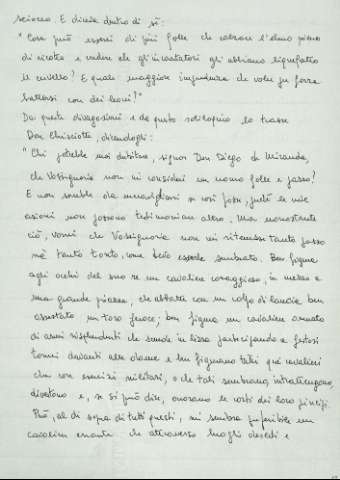 sciocco. E diceva dentro di sé:
"Cosa può esserci di più folle che calzare l'elmo pieno
di ricotta e credere che gli incantatori gli abbiano liquefatto
il cervello? E quale maggiore imprudenza che voler per forza
battersi con dei leoni?"
Da queste divagazioni e da questo soliloquio lo trasse
Don Chisciotte, dicendogli:
"Chi potrebbe mai dubitare, signor Don Diego de Miranda,
che Vossignoria non mi consideri un uomo folle e pazzo?
E non sarebbe da meravigliarsi se così fosse, perché le mie
azioni non possono testimoniare altro. Ma nonostante
ciò, vorrei che Vossignoria non mi ritenesse tanto pazzo
né tanto tonto, come debbo esserle sembrato. Ben figura
agli occhi del suo re un cavaliere coraggioso, in mezzo a
una grande piazza, che abbatte con un colpo di lancia ben
assestato un toro feroce; ben figura un cavaliere armato
di armi risplendenti che scende in lizza partecipando a festosi
tornei davanti alle dame e ben figurano tutti quei cavalieri
che con esercizi militari, o che tali sembrano, intrattengono,
divertono e, se si può dire, onorano le corti dei loro principi.
Però, al di sopra di tutti questi, mi sembra preferibile un
cavaliere errante che attraverso luoghi deserti e